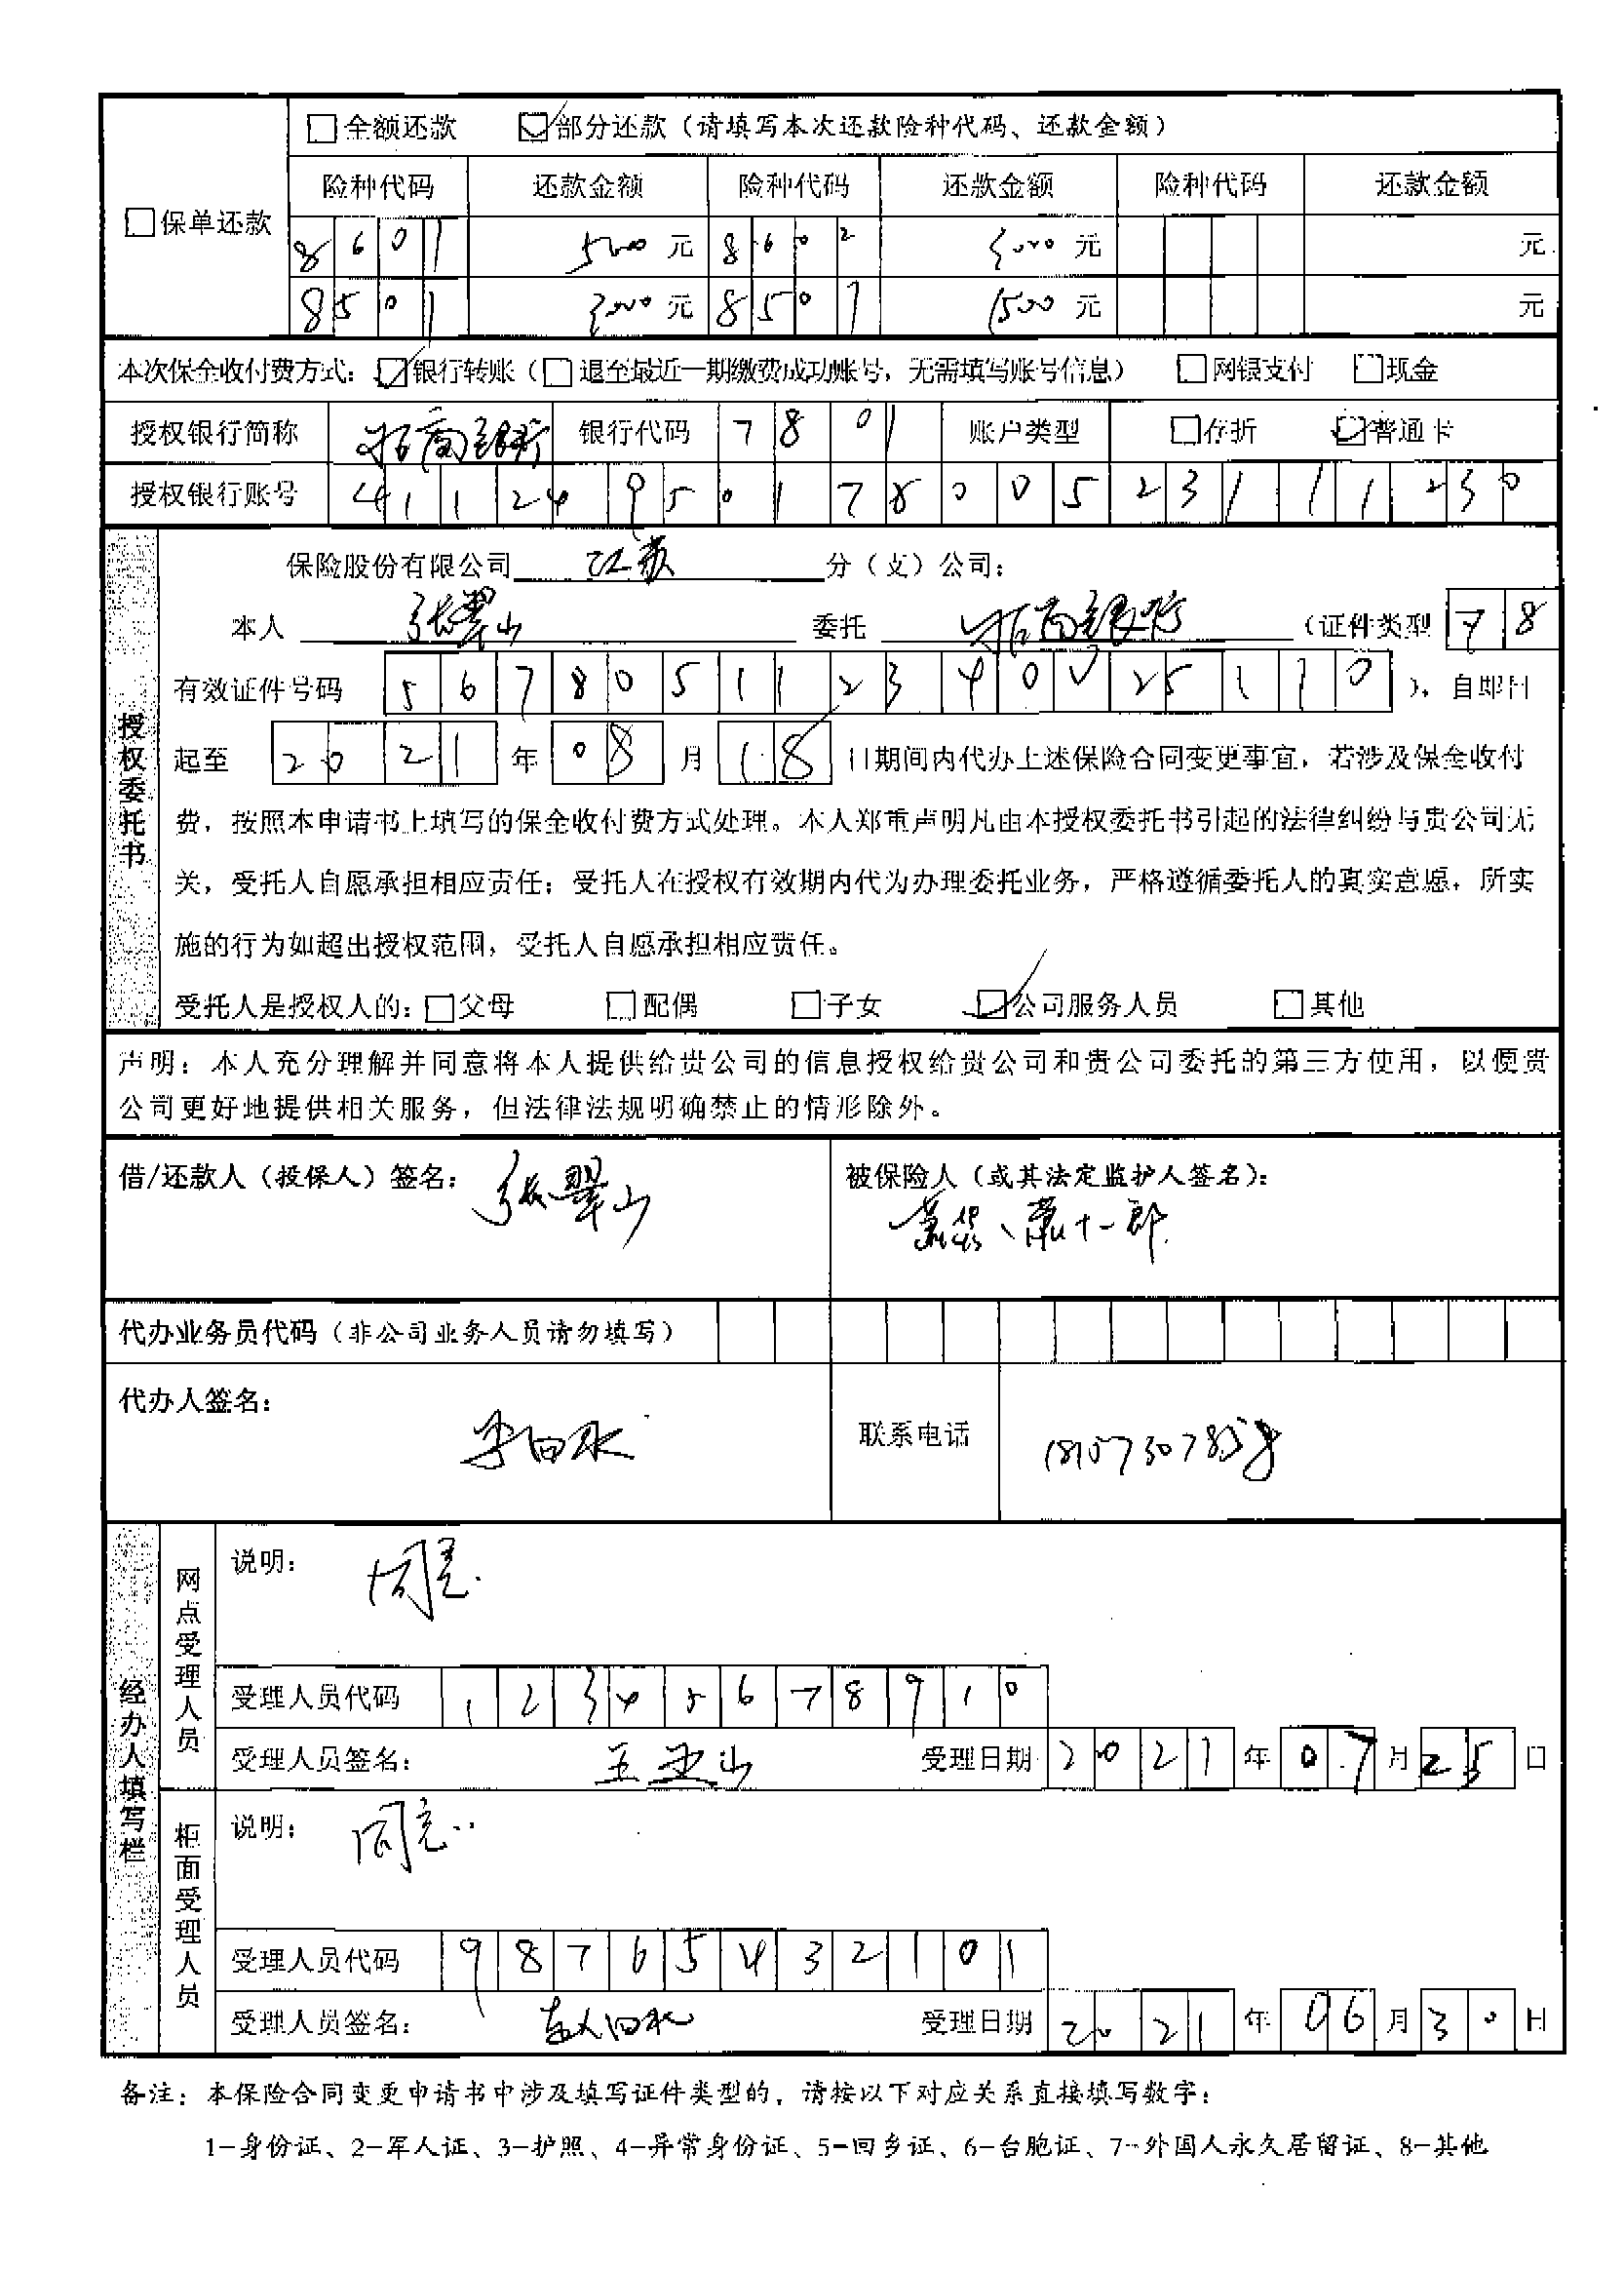 □全额还款 ☑部分还款（请填写本次还款险种代码、还款金额）
险种代码 还款金额 险种代码 还款金额 险种代码 还款金额
□保单还款
8601 5000 元 8602 5000 元 元
8501 3000 元 8501 1500 元 元
本次保全收付费方式：☑银行转账（□退至最近一期缴费成功账号，无需填写账号信息） □网银支付 □现金
授权银行简称 招商银行 银行代码 7801 账户类型 □存折 ☑普通卡
授权银行账号 4112495017800523111230
授权委托书
保险股份有限公司 江苏 分（支）公司：
本人 张翠山 委托 招商银行 （证件类型 78
有效证件号码 567805112340025110 ），自即日
起至 2021 年 08 月 18 日期间内代办上述保险合同变更事宜，若涉及保全收付
费，按照本申请书上填写的保全收付费方式处理。本人郑重声明凡由本授权委托书引起的法律纠纷与贵公司无
关，受托人自愿承担相应责任；受托人在授权有效期内代为办理委托业务，严格遵循委托人的真实意愿，所实
施的行为如超出授权范围，受托人自愿承担相应责任。
受托人是授权人的：□父母 □配偶 □子女 ☑公司服务人员 □其他
声明：本人充分理解并同意将本人提供给贵公司的信息授权给贵公司和贵公司委托的第三方使用，以便贵
公司更好地提供相关服务，但法律法规明确禁止的情形除外。
借/还款人（投保人）签名： 张翠山 被保险人（或其法定监护人签名）：
、萧十一郎
代办业务员代码（非公司业务人员请勿填写）
代办人签名：
李白水 联系电话
经办人填写栏
网点受理人员
说明： 同意.
受理人员代码 12345678910
受理人员签名： 山 受理日期 2021 年 07 月 25 日
柜面受理人员
说明： 同意..
受理人员代码 98765432101
受理人员签名： 受理日期 2021 年 06 月 30 日
备注：本保险合同变更申请书中涉及填写证件类型的，请按以下对应关系直接填写数字：
1-身份证、2-军人证、3-护照、4-异常身份证、5-回乡证、6-台胞证、7-外国人永久居留证、8-其他